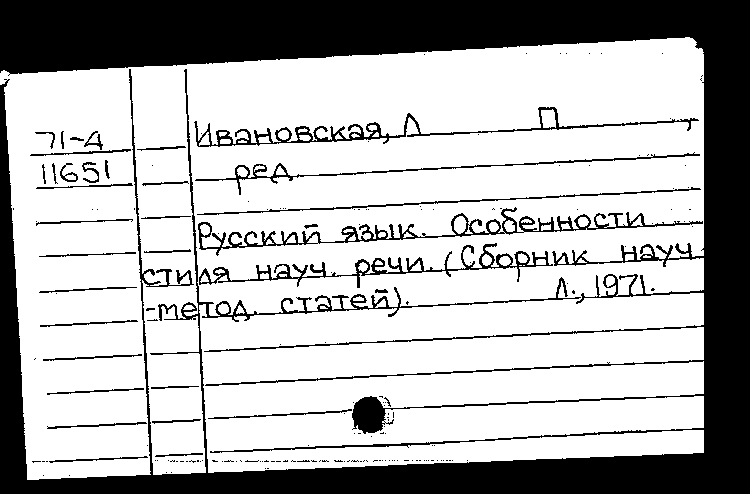 71-4 Ивановская, Л П ,
11651 ред.
Русский язык. Особенности
стиля науч. речи. (Сборник науч.
-метод. статей). Л., 1971.